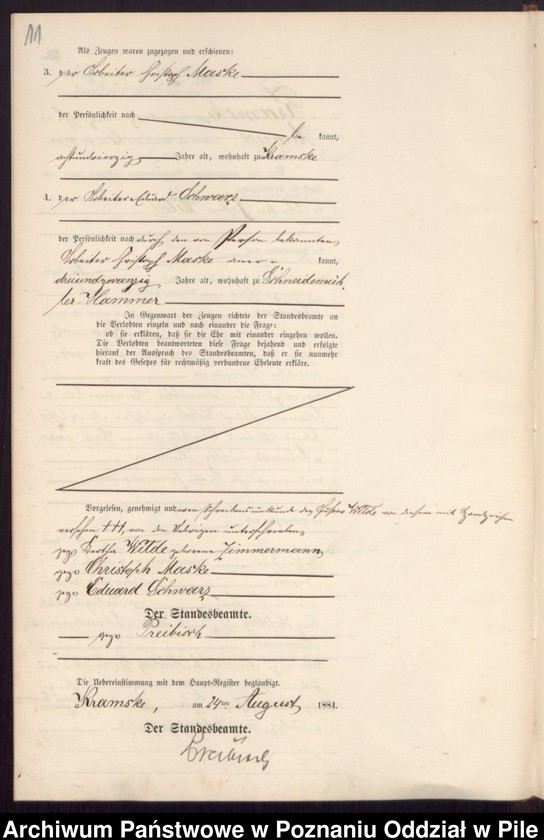 11
Als Zeugen waren zugezogen und erschienen:
3. der Arbeiter Christoph Maske
der Persönlichkeit nach
be kannt,
achtundvierzig Jahre alt, wohnhaft zu Kramske
4. der Arbeiter Eduard Schwarz
der Persönlichkeit nach durch den von Person bekannten
Arbeiter Christoph Maske aner= kannt,
dreiundzwanzig Jahre alt, wohnhaft zu Schneidemüh=
ler-Hammer
In Gegenwart der Zeugen richtete der Standesbeamte an
die Verlobten einzeln und nach einander die Frage:
ob sie erklären, daß sie die Ehe mit einander eingehen wollen.
Die Verlobten beantworteten diese Frage bejahend und erfolgte
hierauf der Ausspruch des Standesbeamten, daß er sie nunmehr
kraft des Gesetzes für rechtmäßig verbundene Eheleute erkläre.
Vorgelesen, genehmigt und wegen Schreibensunkunde des Wilde von diesem mit Handzeichen
versehen +++, von den Uebrigen unterschrieben
gez. Bertha Wilde geborene Zimmermann
gez. Christoph Maske
gez. Eduard Schwarz
Der Standesbeamte.
gez. Preibisch
Die Uebereinstimmung mit dem Haupt-Register beglaubigt.
Kramske, am 24ten August 1881.
Der Standesbeamte.
Preibisch
Archiwum Państwowe w Poznaniu Oddział w Pile